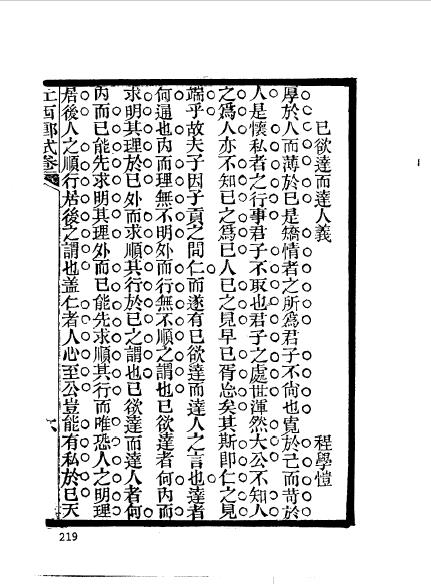 已欲達而達人義 程學愷
厚於人而薄於已是矯情者之所爲君子不尙也寬於己而苛於
人是懷私者之行事君子不取也君子之處世渾然大公不知人
之爲人亦不知已之爲已人已之見早已胥忘矣其斯卽仁之見
端乎故夫子因子貢之問仁而遂有已欲達而達人之言也達者
何通也內而理無不明外而行無不順之謂也已欲達者何內而
求明其理於已外而求順其行於已之謂也已欲達而達人者何
內而已能先求明其理外而已能先求順其行而唯恐人之明理
居後人之順行居後之謂也盖仁者人心至公豈能有私於已天
219